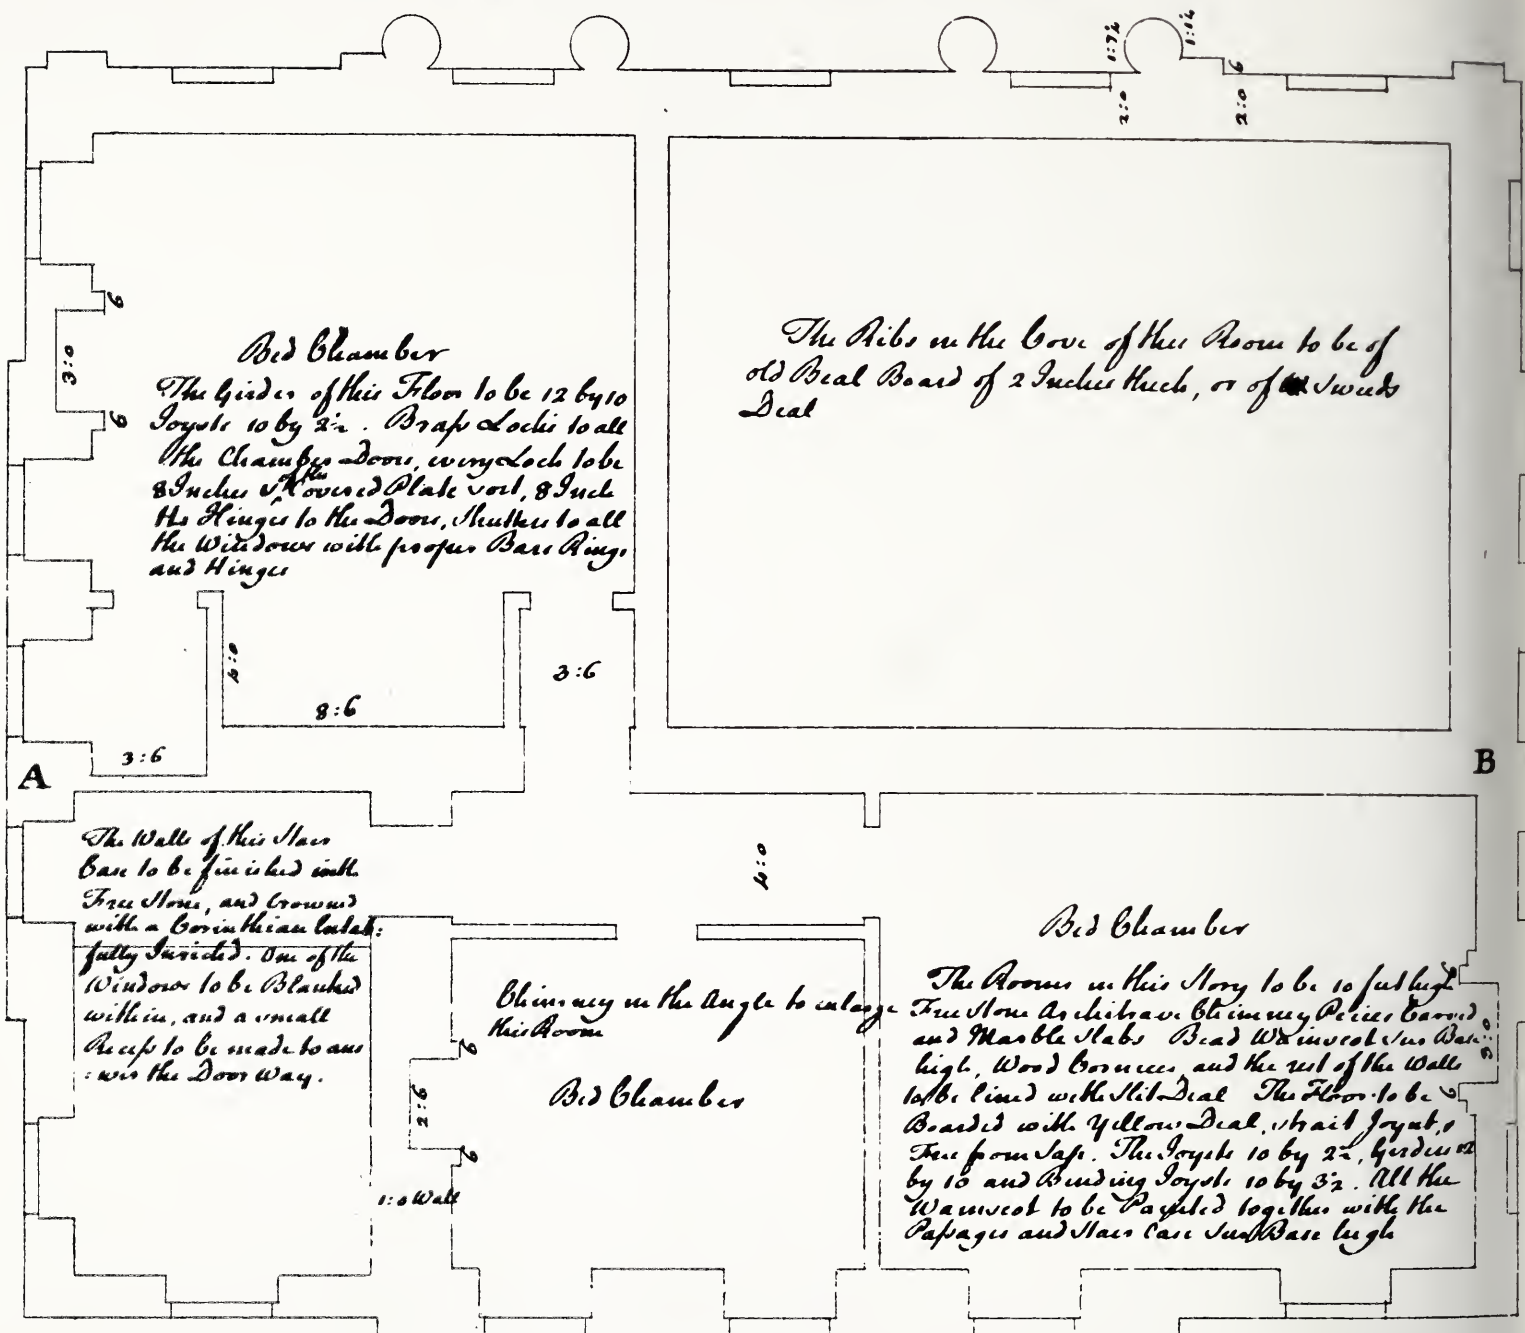 1:7½
1:1½
6
2:0
2:0
6
3:0
6
Bed Chamber
The Girder of this Floor to be 12 by 10
Joysts 10 by 2½. Brass Locks to all
the Chamber Doors, every Lock to be
8 Inches of the Covered Plate sort, 8 Inch
H Hinges to the Doors, Shutters to all
the Windows with proper Bars Rings
and Hinges
The Ribs in the Cove of this Room to be of
old Deal Board of 2 Inches thick, or of Sweeds
Deal
4:0
8:6
3:6
3:6
A
B
The Walls of this Stair
Case to be finished with
Free Stone, and Crowned
with a Corinthian Entab:
fully Inriched. One of the
Windows to be Blanked
within, and a small
Recess to be made to ans
:wer the Door Way.
4:0
Chimney in the Angle to enlarge
this Room
Bed Chamber
6
2:6
6
1:0 Wall
Bed Chamber
The Rooms in this Story to be 10 feet high
Free Stone Architrave Chimney Peices Carved
and Marble Slabs Bead Wainscot Sur Base
high, Wood Cornices, and the rest of the Walls
to be lined with Slit Deal The Floor to be
Boarded with Yellow Deal, strait Joynt, &
Free from Sap. The Joysts 10 by 2½, Girders 12
by 10 and Binding Joysts 10 by 3½. All the
Wainscot to be Paynted together with the
Passages and Stair Case Sur Base high
6
3:0
6